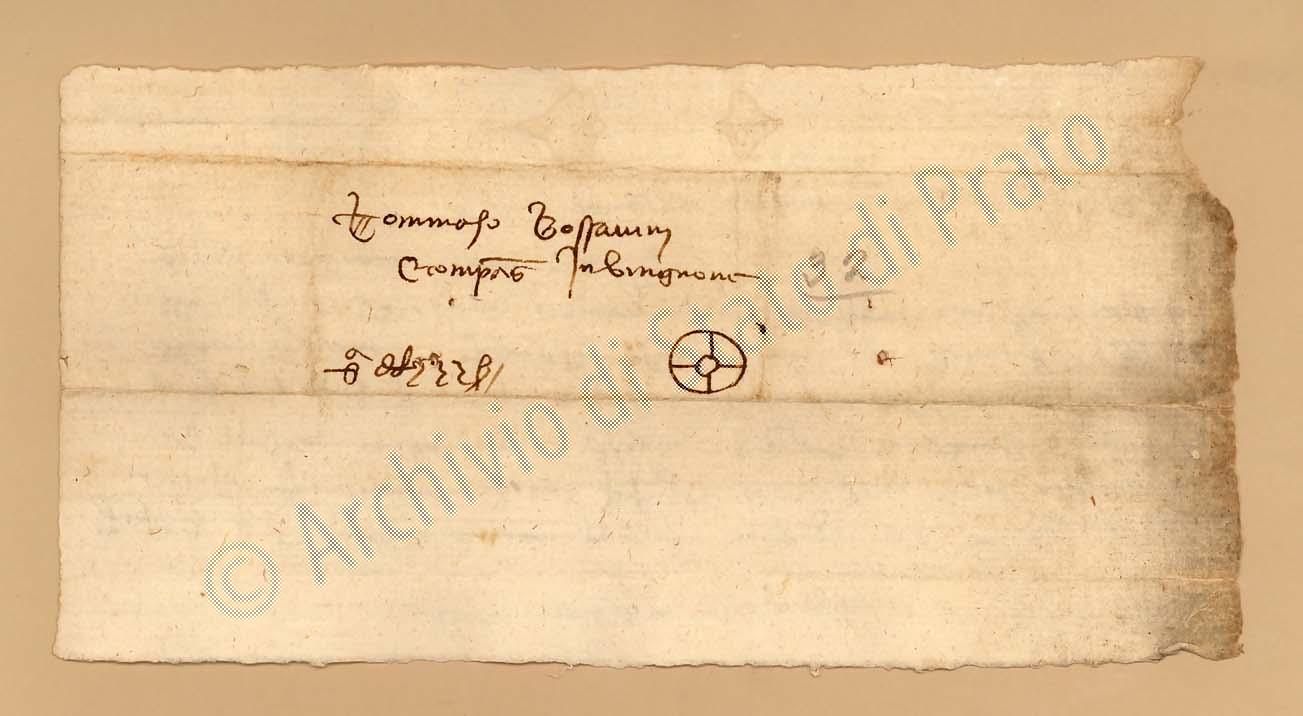 Tommaso Bossavini
Compa͂s Invingnone
32
© Archivio di Stato di Prato